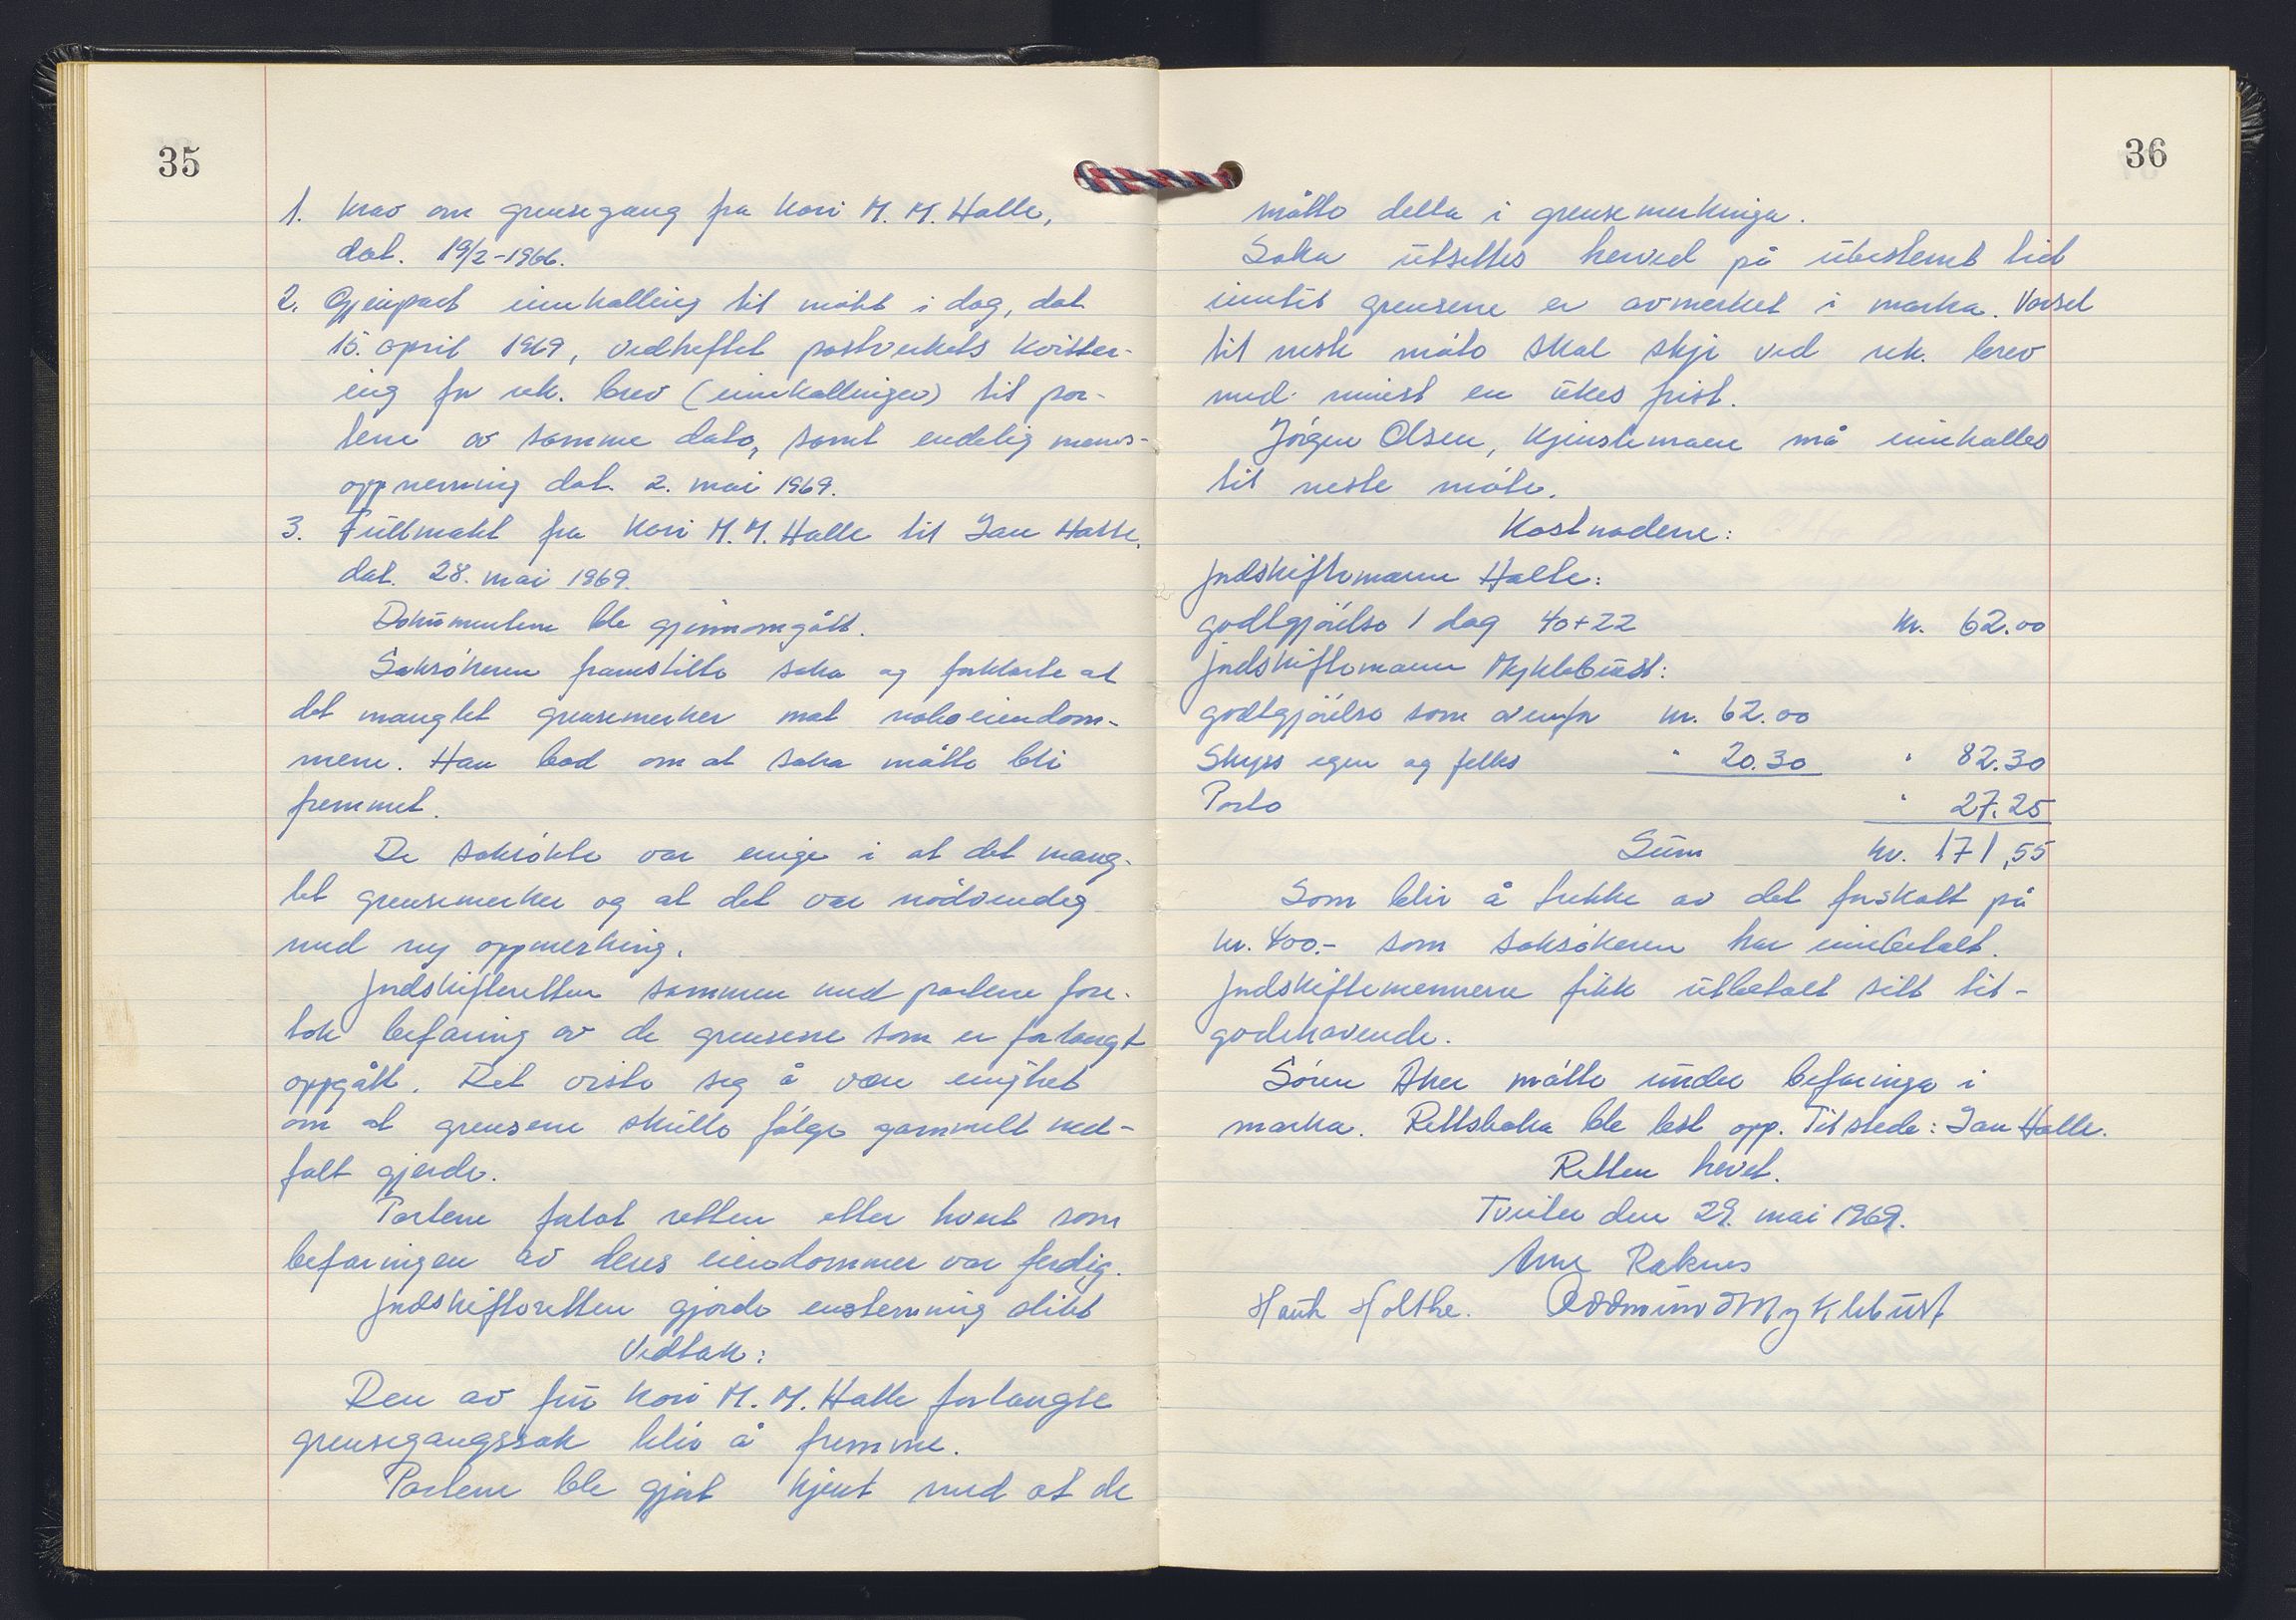 35
1. Krav om grensegang fra Kari M. M. Halle,
dat. 19/2-1966.
2. Gjenpart innkalling til møtet i dag, dat
15. april 1969, vedheftet postverkets kvitter-
ing for rek. brev (innkallinger) til par-
tene av samme dato, samt endelig manns-
oppnemning dat. 2. mai 1969.
3. Fullmakt fra Kari M. M. Halle til Jan Halle,
dat. 28. mai 1969.
Dokumentene ble gjennomgått.
Saksøkeren framstilte saka og forklarte at
det manglet grensemerker mot naboeiendom-
mene. Han bad om at saka måtte bli
fremmet.
De saksøkte var enige i at det mang-
let grensemerker og at det var nødvendig
med ny oppmerking.
Jordskifteretten sammen med partene fore-
tok befaring av de grensene som er forlangt
oppgått. Det viste seg å være enighet
om at grensene skulle følge gammelt ned-
falt gjerde.
Partene forlot retten etter hvert som
befaringen av deres eiendommer var ferdig.
Jordskifteretten gjorde enstemmig slikt
Vedtak:
Den av fru Kari M. M. Halle forlangte
grensegangssak blir å fremme.
Partene ble gjort kjent med at de
36
måtte delta i grensemerkinga.
Saka utsettes herved på ubestemt tid
inntil grensene er avmerket i marka. Varsel
til neste møte skal skje ved rek. brev
med minst en ukes frist.
Jørgen Olsen, Kjenstemann må innkalles
til neste møte.
Kostnadene:
Jordskiftemann Holte:
godtgjørelse 1 dag 40+22 kr. 62.00
Jordskiftemann Myklebust:
godtgjørelse som ovenfor kr. 62.00
Skyss egen og felles " 20.30 " 82.30
Porto " 27.25
Sum kr. 171,55
Som blir å trekke av det forskott på
kr. 400.- som saksøkeren har innbetalt.
Jordskiftemennene fikk utbetalt sitt til-
godehavende.
Søren Aker møtte under befaringa i
marka. Rettsboka ble lest opp. Tilstede: Jan Halle.
Retten hevet.
Tveiter den 29. mai 1969.
Arne Raknes
Hauk Holthe. Oddmund Myklebust